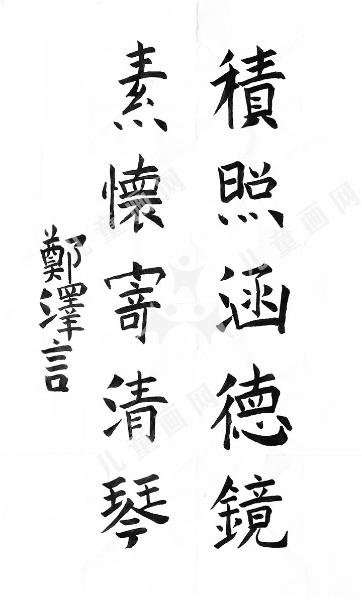 積照涵德鏡
素懷寄清琴
鄭澤言
儿童画网